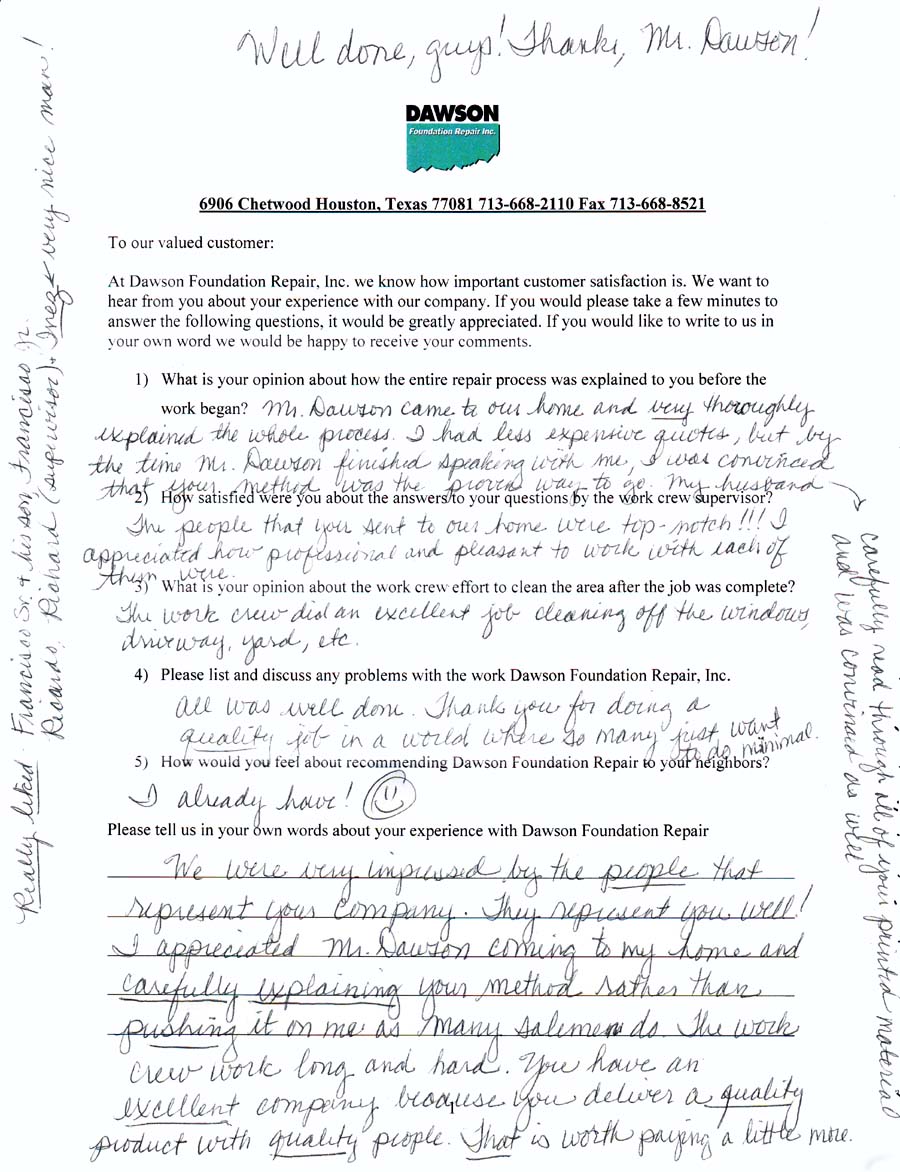 Well done, guys! Thanks, Mr. Dawson!
DAWSON
Foundation Repair Inc.
6906 Chetwood Houston, Texas 77081 713-668-2110 Fax 713-668-8521
To our valued customer:
At Dawson Foundation Repair, Inc. we know how important customer satisfaction is. We want to
hear from you about your experience with our company. If you would please take a few minutes to
answer the following questions, it would be greatly appreciated. If you would like to write to us in
your own word we would be happy to receive your comments.
1) What is your opinion about how the entire repair process was explained to you before the
work began? Mr. Dawson came to our home and very thoroughly
explained the whole process. I had less expensive quotes, but by
the time Mr. Dawson finished speaking with me, I was convinced
that your method was the proven way to go. My husband
carefully read through all of your printed material
and was convinced as well
2) How satisfied were you about the answers to your questions by the work crew supervisor?
The people that you sent to our home were top-notch!!! I
appreciated how professional and pleasant to work with each of
them were.
3) What is your opinion about the work crew effort to clean the area after the job was complete?
The work crew did an excellent job cleaning off the windows,
driveway, yard, etc.
4) Please list and discuss any problems with the work Dawson Foundation Repair, Inc.
All was well done. Thank you for doing a
quality job in a world where so many just want
to do minimal.
5) How would you feel about recommending Dawson Foundation Repair to your neighbors?
I already have!
Please tell us in your own words about your experience with Dawson Foundation Repair
We were very impressed by the people that
represent your company. They represent you well!
I appreciated Mr. Dawson coming to my home and
carefully explaining your method rather than
pushing it on me as many salemen do. The work
crew work long and hard. You have an
excellent company because you deliver a quality
product with quality people. That is worth paying a little more.
Really liked Francisco Sr. + his son, Francisco Jr.
Ricardo, Richard (supervisor) + Inez very nice man!